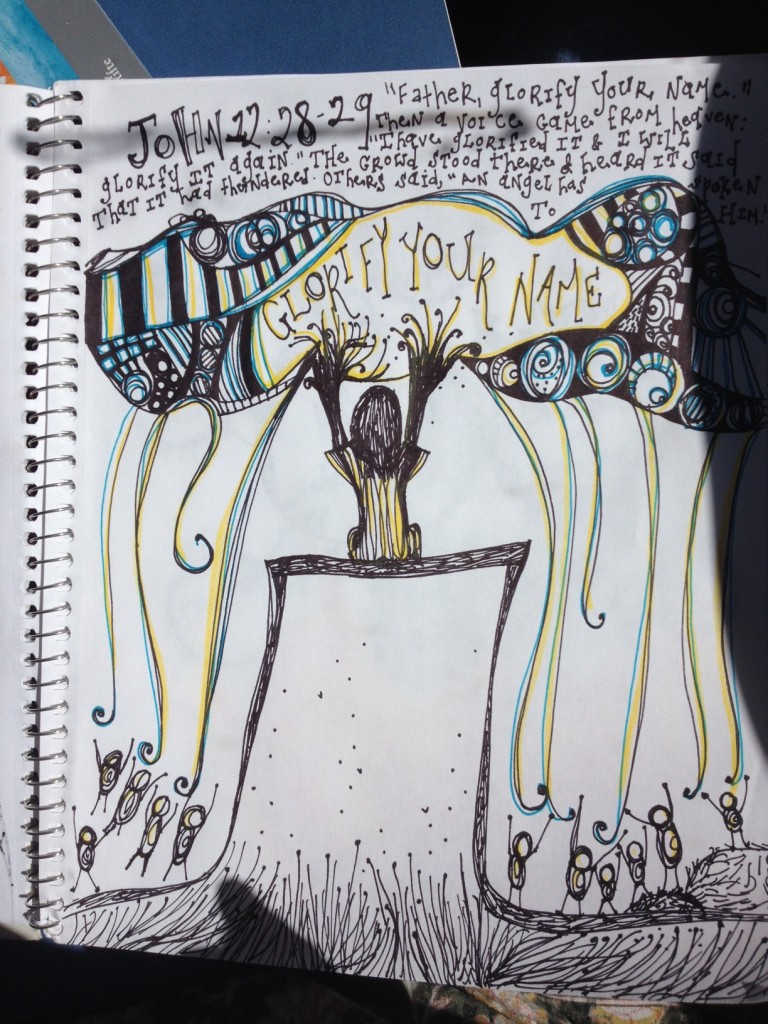 JOHN 12:28-29 "Father, glorify your name."
Then a voice came from heaven:
"I have glorified it & I will
glorify it again." The crowd stood there & heard it said
that it had thundered. Others said, "an angel has spoken
To Him."
GLORIFY YOUR NAME